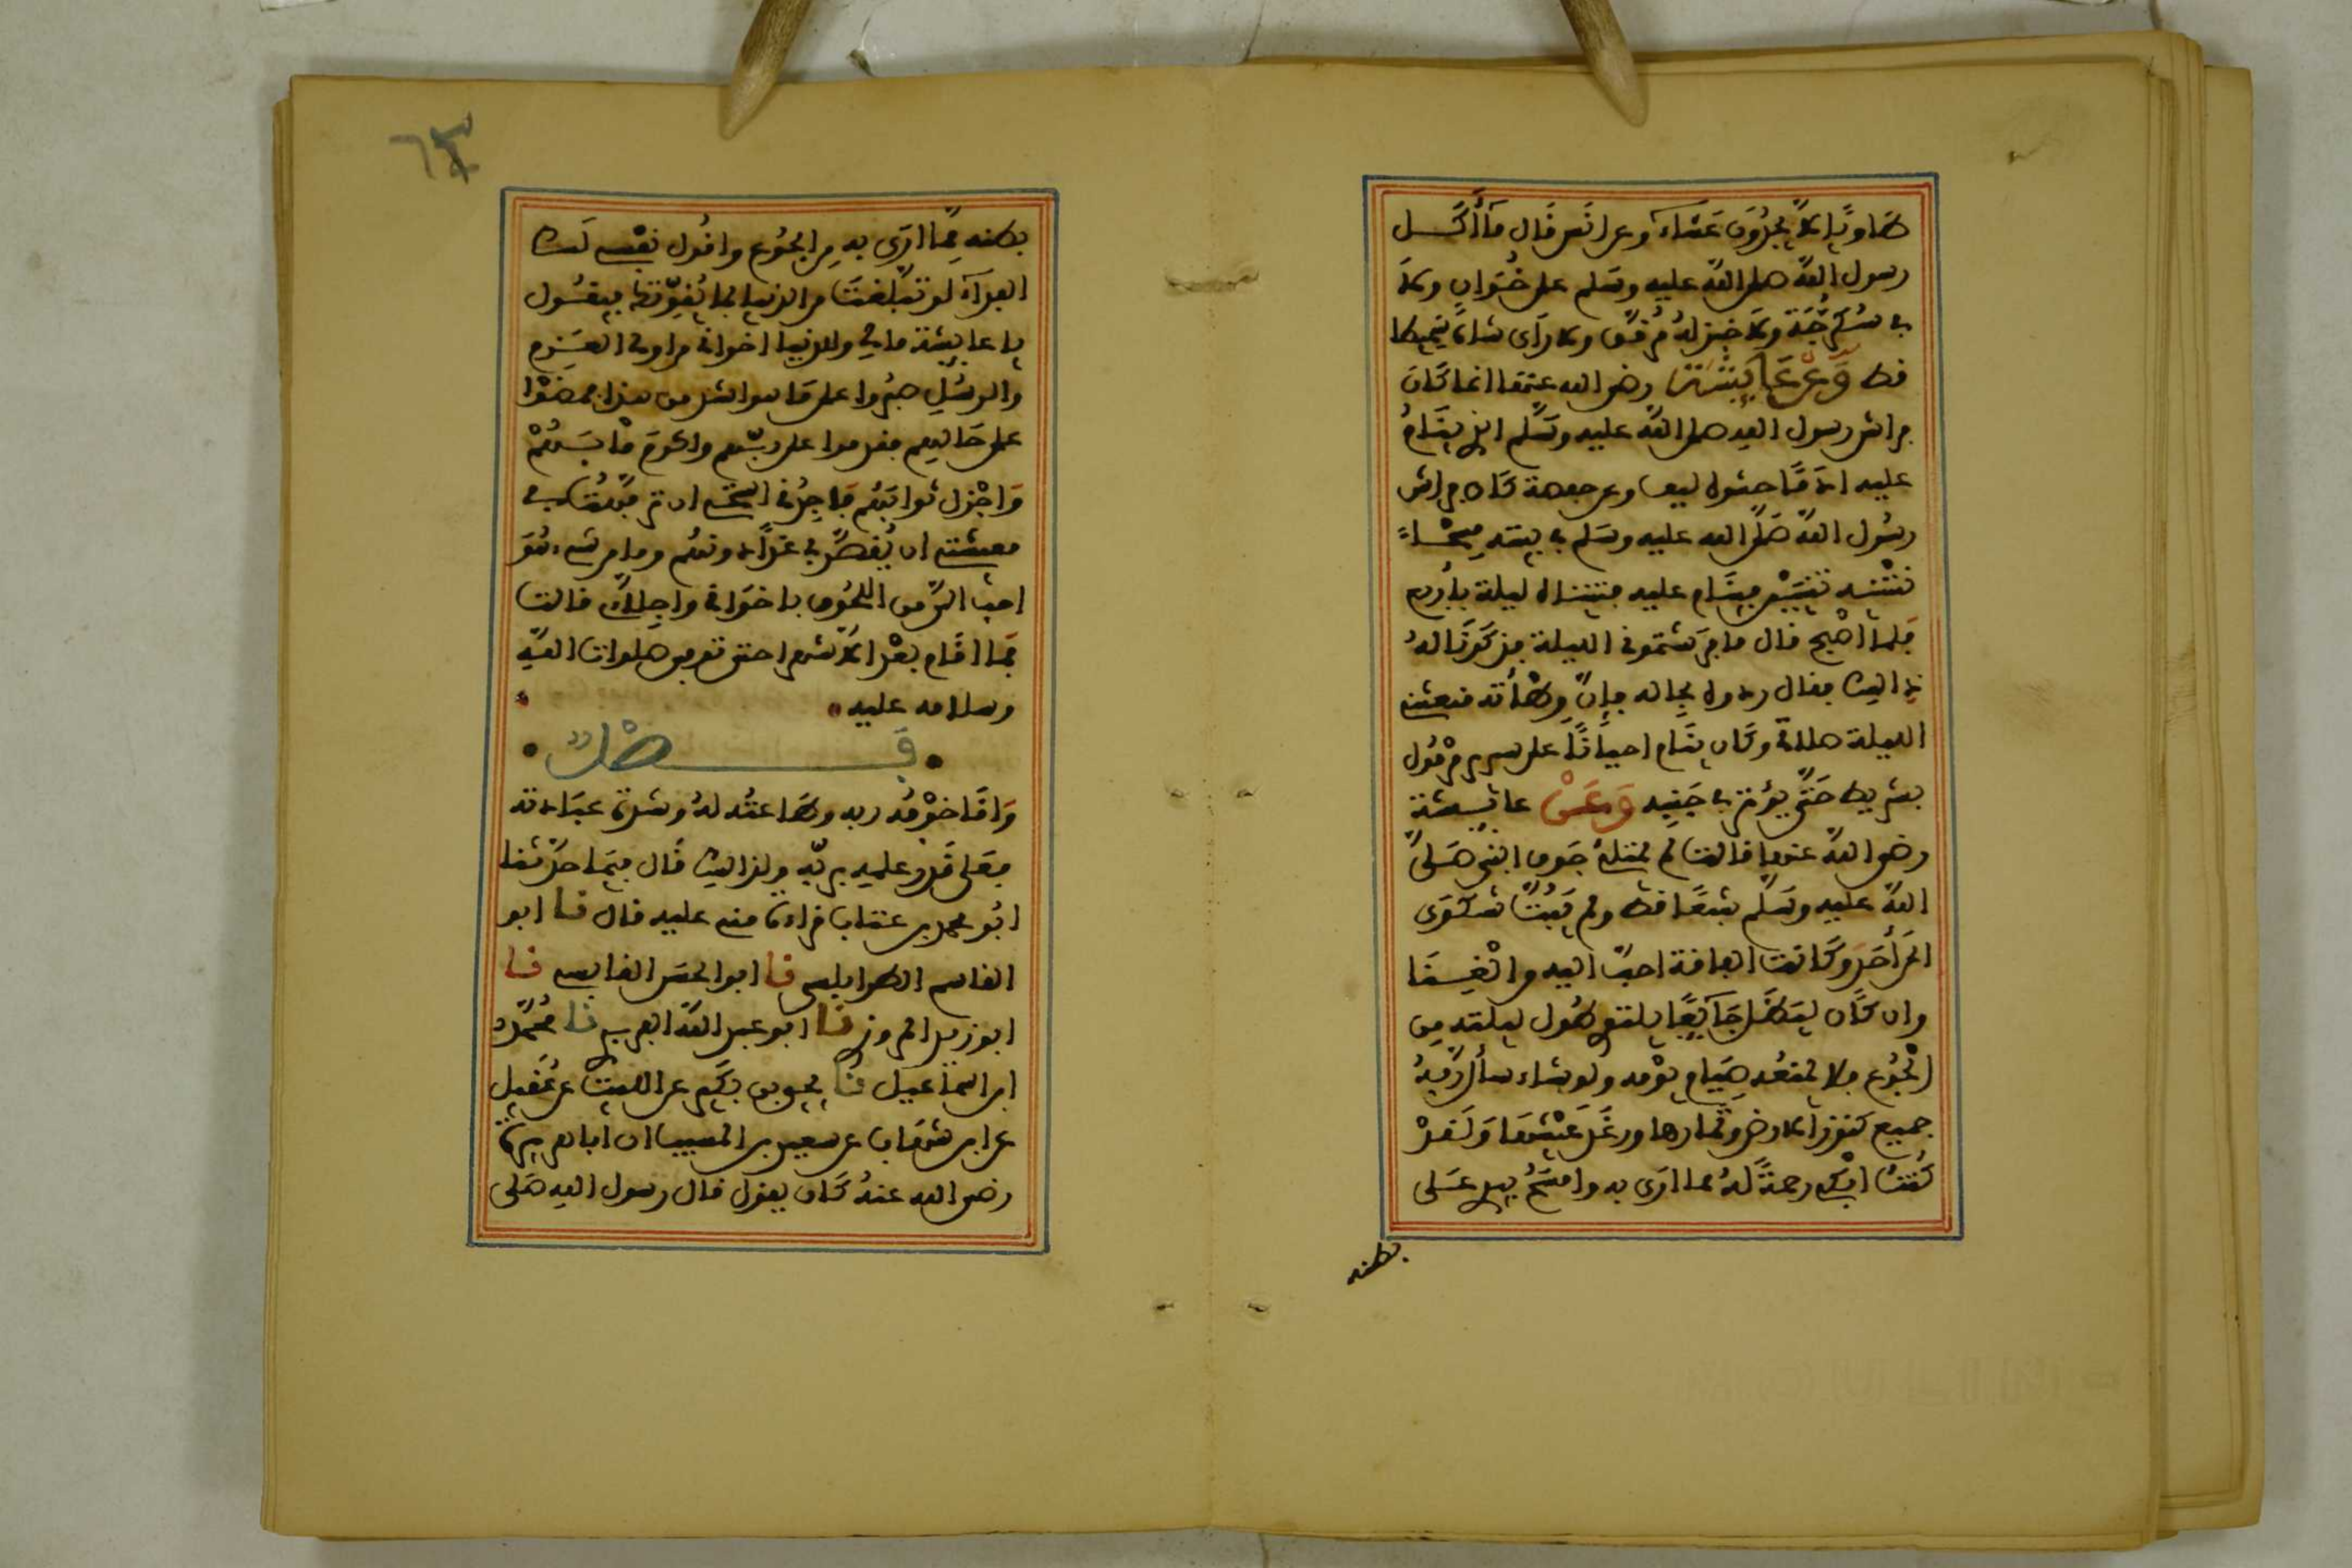 طاويا لا يجدون عشاء وعن أنس قال ما أكل
رسول الله صلى الله عليه وسلم على خوان ولا
في سكرجة ولا خبز له مرقق ولا رأى شاة سميطا
قط وعن عايشة رضي الله عنها انما كان
فراش رسول الله صلى الله عليه وسلم الذي ينام
عليه ادما حشوه ليف وعن حفصة كان فراش
رسول الله صلى الله عليه وسلم في بيته مسحا
نثنيه ثنيتين فينام عليه فثنيناه ليلة بأربع
فلما أصبح قال ما فرشتموني الليلة فذكرنا له
ذالك فقال ردوه بحاله فإن وطأته منعتني
الليلة صلاتي وكان ينام احيانا على سرير مرمول
بشريط حتى يؤثر في جنبه وعن عائشة
رضي الله عنها قالت لم يمتلئ جوف النبي صلى
الله عليه وسلم شبعا قط ولم يبث شكوى
الى أحد وكانت الفاقة احب اليه من الغنى
وان كان ليظل جائعا يلتوي طول ليلته من
الجوع فلا يمنعه صيام يومه ولو شاء سأل ربه
جميع كنوز الارض وثمارها ورغد عيشها ولقد
كنت ابكي رحمة له مما ارى به وامسح بيدي على
بطنه
٦٣
بطنه مما ارى به من الجوع واقول نفسي لك
الفداء لو تبلغت من الدنيا بما يقوتك فيقول
يا عايشة مالي وللدنيا اخواني من اولي العزم
من الرسل صبروا على ما هو اشد من هذا فمضوا
على حالهم فقدموا على ربهم فاكرم مآبهم
وأجزل ثوابهم فأجدني استحي ان ترفهت في
معيشتي ان يقصر بي غدا دونهم وما من شيء هو
احب الي من اللحوق باخواني وأخلائي قالت
فما اقام بعد الا شهرا حتى توفي صلوات الله
وسلامه عليه
فصل
وأما خوفه ربه وطاعته له وشدة عبادته
فعلى قدر علمه بربه ولذالك قال فيما حدثنا
ابو محمد بن عتاب قراءة مني عليه قال نا ابو
القاسم الطرابلسي نا ابو الحسن القابسي نا
ابو زيد المروزي نا ابو عبد الله الفربري نا محمد
بن اسماعيل نا يحيى بن بكير عن الليث عن عقيل
عن ابن شهاب عن سعيد بن المسيب ان ابا هريرة
رضي الله عنه كان يقول قال رسول الله صلى